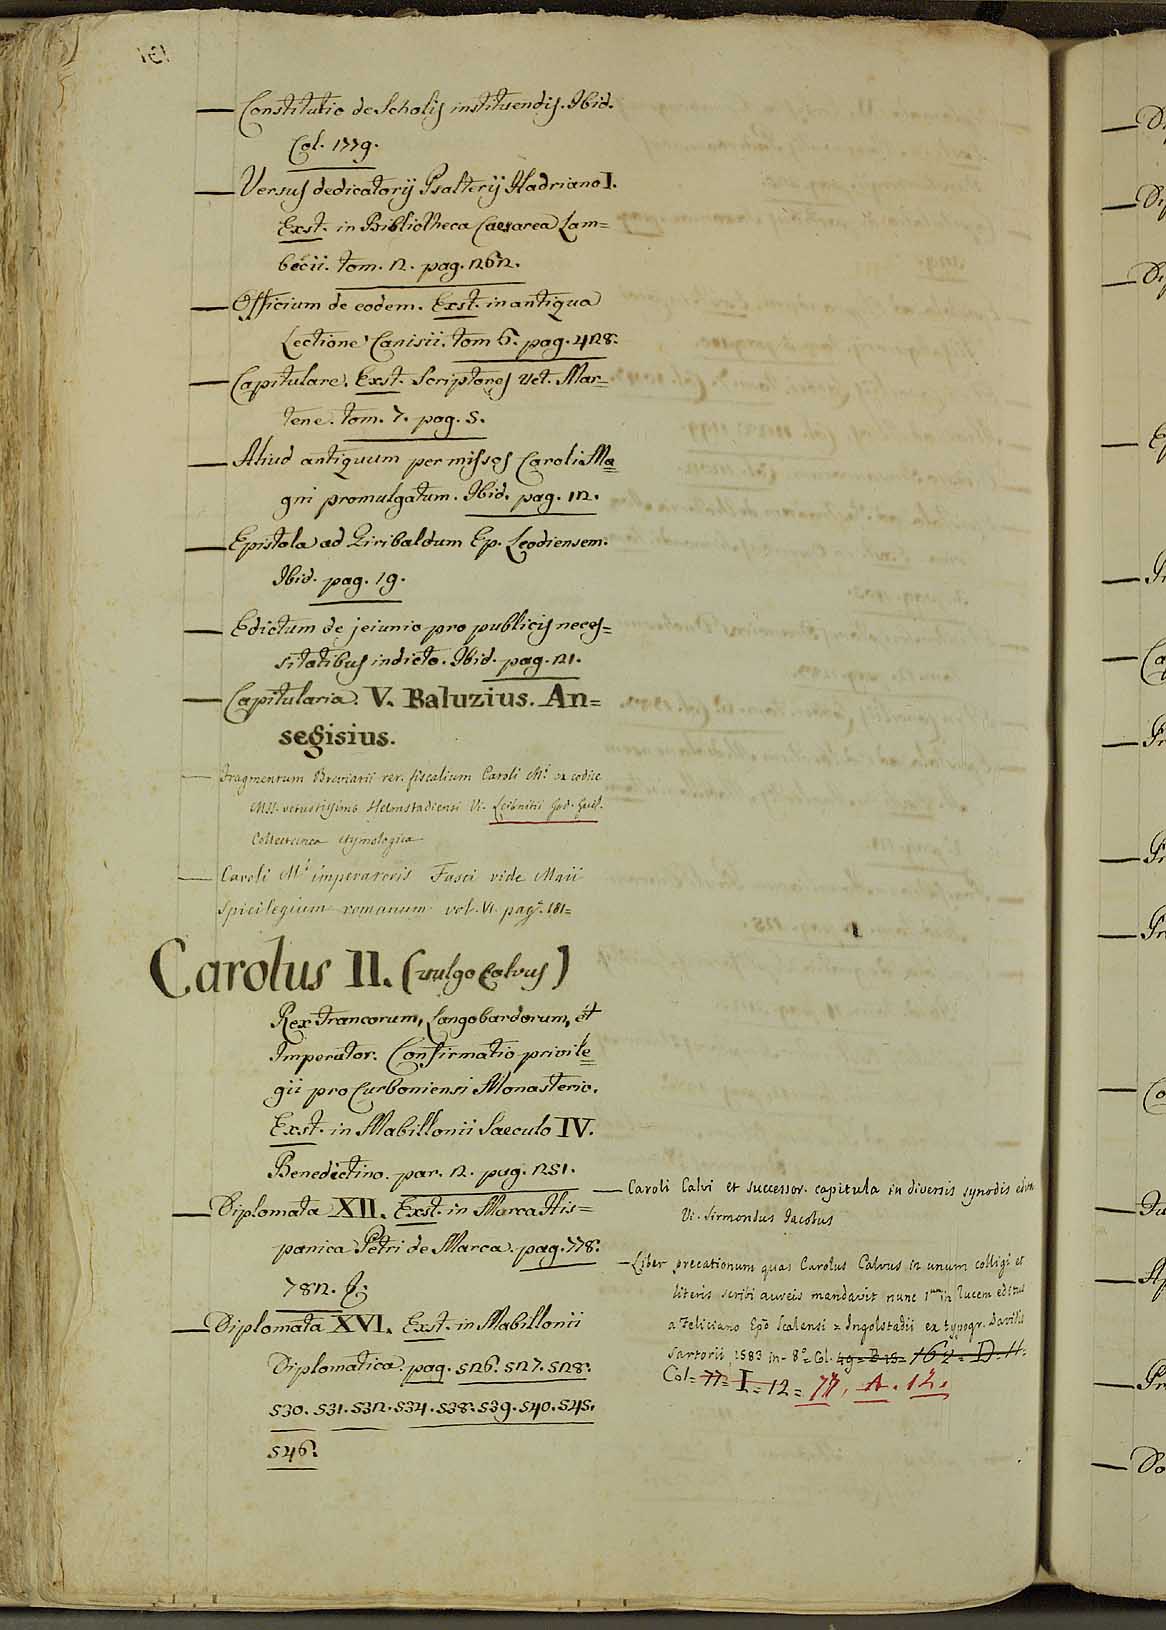 — Constitutio de Scholis instituendis. Ibid.
Col. 1779.
— Versus dedicatorii Psalterii Hadriano I.
Exst. in Bibliotheca Caesarea Lam=
becii. tom. 2. pag. 262.
— Officium de eodem. Exst. in antiqua
Lectione Canisii. tom 6. pag. 428.
— Capitulare. Exst. Scriptores Vet. Mar=
tene. tom. 7. pag. 5.
— Aliud antiquum per missos Caroli Ma=
gni promulgatum. Ibid. pag. 12.
— Epistola ad Giribaldum Ep. Leodiensem.
Ibid. pag. 19.
— Edictum de jeiunio pro publicis neces=
sitatibus indicto. Ibid. pag. 21.
— Capitularia. V. Baluzius. An=
segisius.
— Fragmentum Breviarii rer. fiscalium Caroli M.i ex codice
Mss. vetustissimo Helmstadiensi Vi. Leibnitii
Collectanea etymologica
— Caroli M.i imperatoris Fasci vide Maii
Spicilegium romanum vol. VI. pag. 181=
Carolus II. (vulgo Calvus)
Rex Francorum, Langobardorum, et
Imperator. Confirmatio privile=
gii pro Curboniensi Monasterio.
Exst. in Mabillonii Saeculo IV.
Benedictino. par. 2. pag. 251.
— Diplomata XII. Exst. in Marca His=
panica Petri de Marca. pag. 778.
782. &
— Diplomata XVI. Exst. in Mabillonii
Diplomatica. pag. 526. 527. 528.
530. 531. 532. 534. 538. 539. 540. 545.
546.
— Caroli Calvi et successor. capitula in diversis synodis edita
Vi. Sirmondus Jacobus
— Liber precationum quas Carolus Calvus in unum colligi et
literis scribi aureis mandavit nunc 1um in lucem editus
a Feliciano Epo Scalensi = Ingolstadii ex typogr. Davidis
Sartorii 1583 in-8° = Col. 49=B=15= 162=D.11=
Col= 77= I= 12= 77. A. 12.